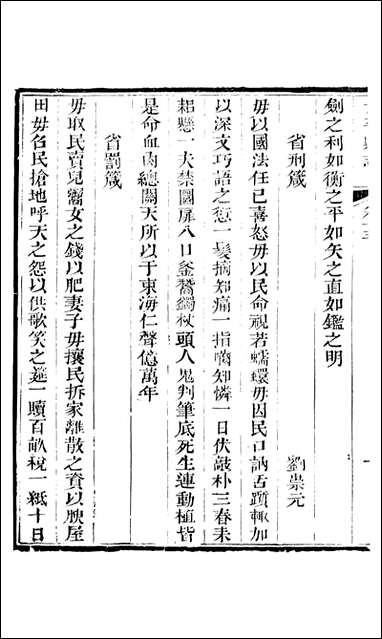 劍之利如衡之平如矢之直如鑑之明
省刑箴
劉崇元
毋以國法任已喜怒毋以民命視若蠕環毋因民口訥舌躓輒加
以深文巧語之愆一髮揃知痛一指嚙知憐一日伏敲朴三春未
耜懸一夫禁圜扉八口釜鬵鐲杖頭人鬼判筆底死生連動植皆
是命血肉總關天所以于東海仁聲億萬年
省罰箴
毋取民賣兒鬻女之錢以肥妻子毋攘民拆家離散之資以腴屋
田毋召民搶地呼天之怨以供歌笑之筵一贖百畝稅一紙十日